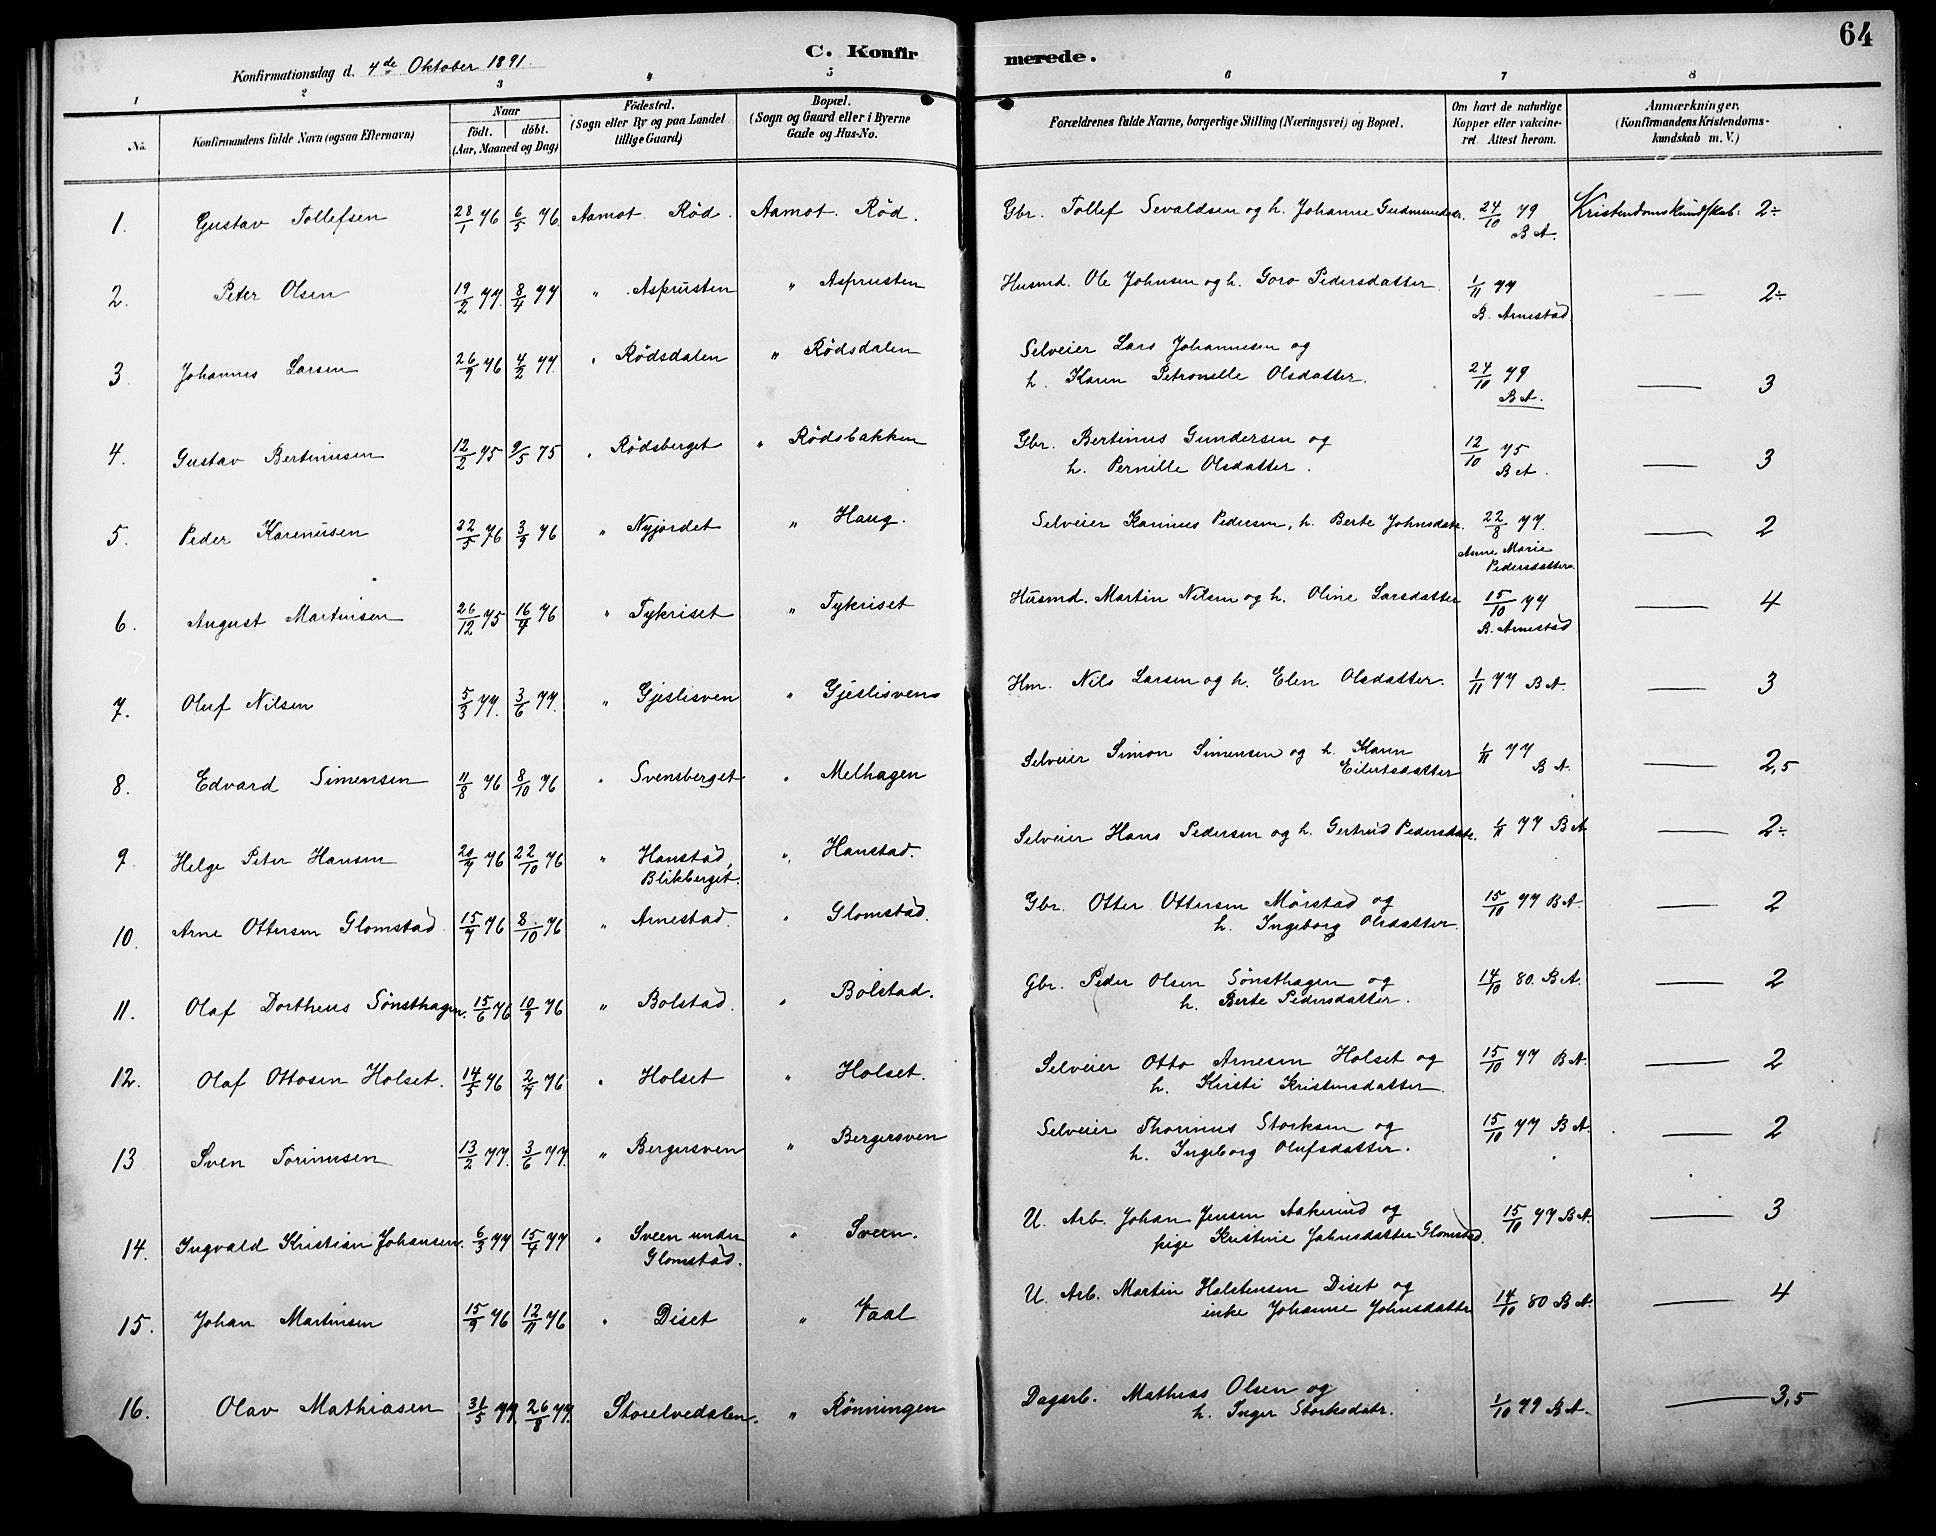 64
C. Konfirmerede.
Konfirmationsdag d. 4de Oktober 1891
1 2 3 4 5 6 7 8
No. Konfirmandens fulde Navn (ogsaa Efternavn) Naar født. døbt. (Aar, Maaned og Dag) Fødested. (Sogn eller By og paa Landet tillige Gaard) Bopæl. (Sogn og Gaard eller i Byerne Gade og Hus-No. Forældrenes fulde Navne, borgerlige Stilling (Næringsvei) og Bopæl. Om havt de naturlige Kopper eller vakcineret. Attest herom. Anmærkninger. (Konfirmandens Kristendomskundskab m. V.)
1. Gustav Tollefsen 28/1 76 6/5 76 Aamot Rød. Aamot. Rød. Gbr. Tollef Sevaldsen og h. Johanne Gudmundsdr. 24/10 79 B A. Kristendomskundskab: 2÷
2. Peter Olsen 19/2 77. 8/4 77 " Asprusten " Asprusten Husmd. Ole Johnsen og h. Goro Pedersdatter 1/11 77 B. Arnestad — 2÷
3. Johannes Larsen 26/9 76 4/2 77. " Rødsdalen " Rødsdalen Selveier Lars Johannesen og
h. Karen Petronelle Olsdatter. 24/10 79 B A. — 3
4. Gustav Bertinusen 12/2 75 9/5 75 " Rødsberget " Rødsbakken Gbr. Bertinus Gundersen og
h. Pernille Olsdatter. 12/10 75 B A. — 3
5. Peder Karenusen 22/5 76 3/9 76 " Nyjordet " Haug. Selveier Karinus Pedersen, h. Berte Johnsdatr. 22/8 77. Anne Marie Pedersdatter. — 2
6. August Martinsen 26/12 75 16/4 76 " Tykriset " Tykriset Husmd. Martin Nilsen og h. Oline Larsdatter 15/10 77 B. Arnestad — 4
7. Oluf Nilsen 5/3 77. 3/6 77. " Gjeslisven " Gjeslisven Hm. Nils Larsen og h. Elen Olsdatter. 1/11 77 B A. — 3
8. Edvard Simensen 11/8 76 8/10 76 " Svensberget " Melhagen Selveier Simon Simensen og h. Karen
Eilertsdatter 1/11 77 B A. — 2,5
9. Helge Peter Hansen 20/7 76 22/10 76 " Hanstad, Blikberget. " Hanstad. Selveier Hans Pedersen og h. Gertrud Pedersdatr. 1/11 77 B A — 2÷
10. Arne Ottersen Glomstad 15/7 76 8/10 76 " Arnestad. " Glomstad. Gbr. Otter Ottersen Mørstad og
h. Ingeborg Olsdatter. 15/10 77 B A — 2
11. Olaf Dortheus Sønsthagen. 15/6 76 10/9 76 " Bolstad. " Bolstad. Gbr. Peder Olsen Sønsthagen og
h. Berte Pedersdatter. 14/10 80. B A. — 2
12. Olaf Ottosen Holset. 14/5 76 2/7 76 " Holset " Holset. Selveier Otto Arnesen Holset og
h. Kirsti Kristensdatter 15/10 77 B A. — 2
13 Sven Torinusen 13/2 77. 3/6 77. " Bergersven " Bergersven Selveier Thorinus Storksen og
h. Ingeborg Olufsdatter. 15/10 77 B A. — 2
14. Ingvald Kristian Johansen. 6/3 77 15/4 77 " Sveen under Glomstad. " Sveen. U. Arb. Johan Jensen Aakerud og
pige Kristine Johnsdatter Glomstad. 15/10 77 B A. — 3
15. Johan Martinsen 15/9 76 12/11 76 " Diset " Vaal U. Arb. Martin Halstensen Diset og
enke Johanne Johnsdatter 14/10 80 B A. — 4
16. Olav Mathiasen 31/5 77 26/8 77. Storelvedalen. " Rønningen Dagarb. Mathias Olsen og
h. Inger Storksdatr. 1/10 79 B A. — 3,5